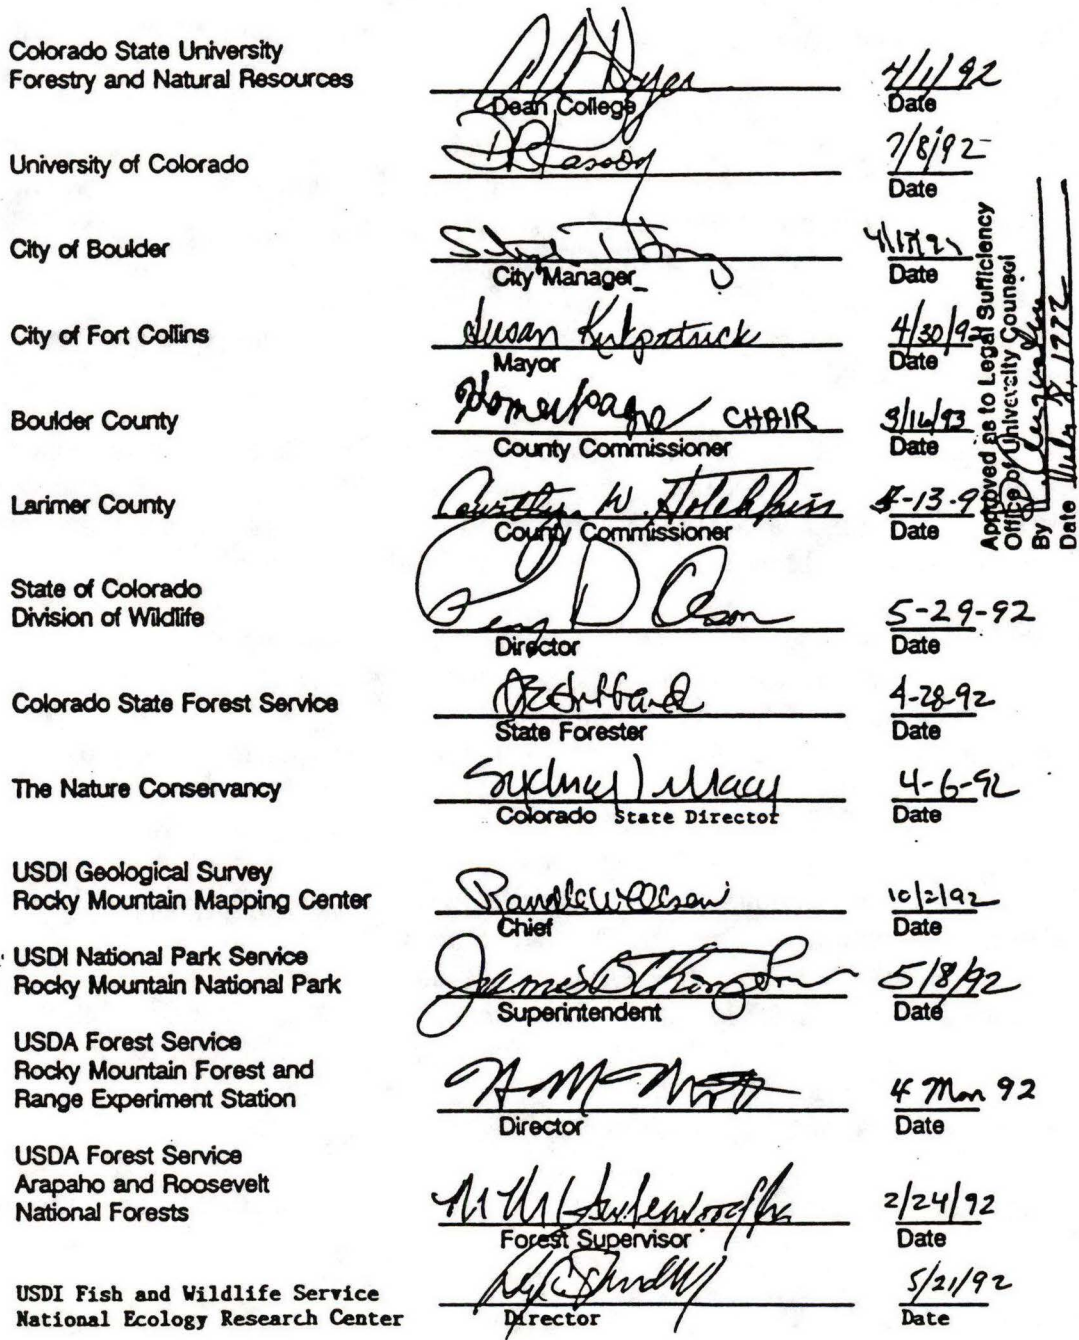 Colorado State University
Forestry and Natural Resources
Dean College
4/1/92
Date
University of Colorado
7/8/92
Date
City of Boulder
City Manager
Date
City of Fort Collins
Susan Kirkpatrick
Mayor
4/30/92
Date
Boulder County
Homer Page CHAIR
County Commissioner
3/16/93
Date
Larimer County
Courtlyn W. Hotchkiss
County Commissioner
Date
Approved as to Legal Sufficiency
Office of University Counsel
By
Date July 8, 1992
State of Colorado
Division of Wildlife
Perry D Olson
Director
5-29-92
Date
Colorado State Forest Service
State Forester
4-28-92
Date
The Nature Conservancy
Sydney Macy
Colorado State Director
4-6-92
Date
USDI Geological Survey
Rocky Mountain Mapping Center
Chief
10/2/92
Date
USDI National Park Service
Rocky Mountain National Park
James B Thompson
Superintendent
5/8/92
Date
USDA Forest Service
Rocky Mountain Forest and
Range Experiment Station
Director
4 Mar 92
Date
USDA Forest Service
Arapaho and Roosevelt
National Forests
Forest Supervisor
2/24/92
Date
USDI Fish and Wildlife Service
National Ecology Research Center
Director
5/21/92
Date